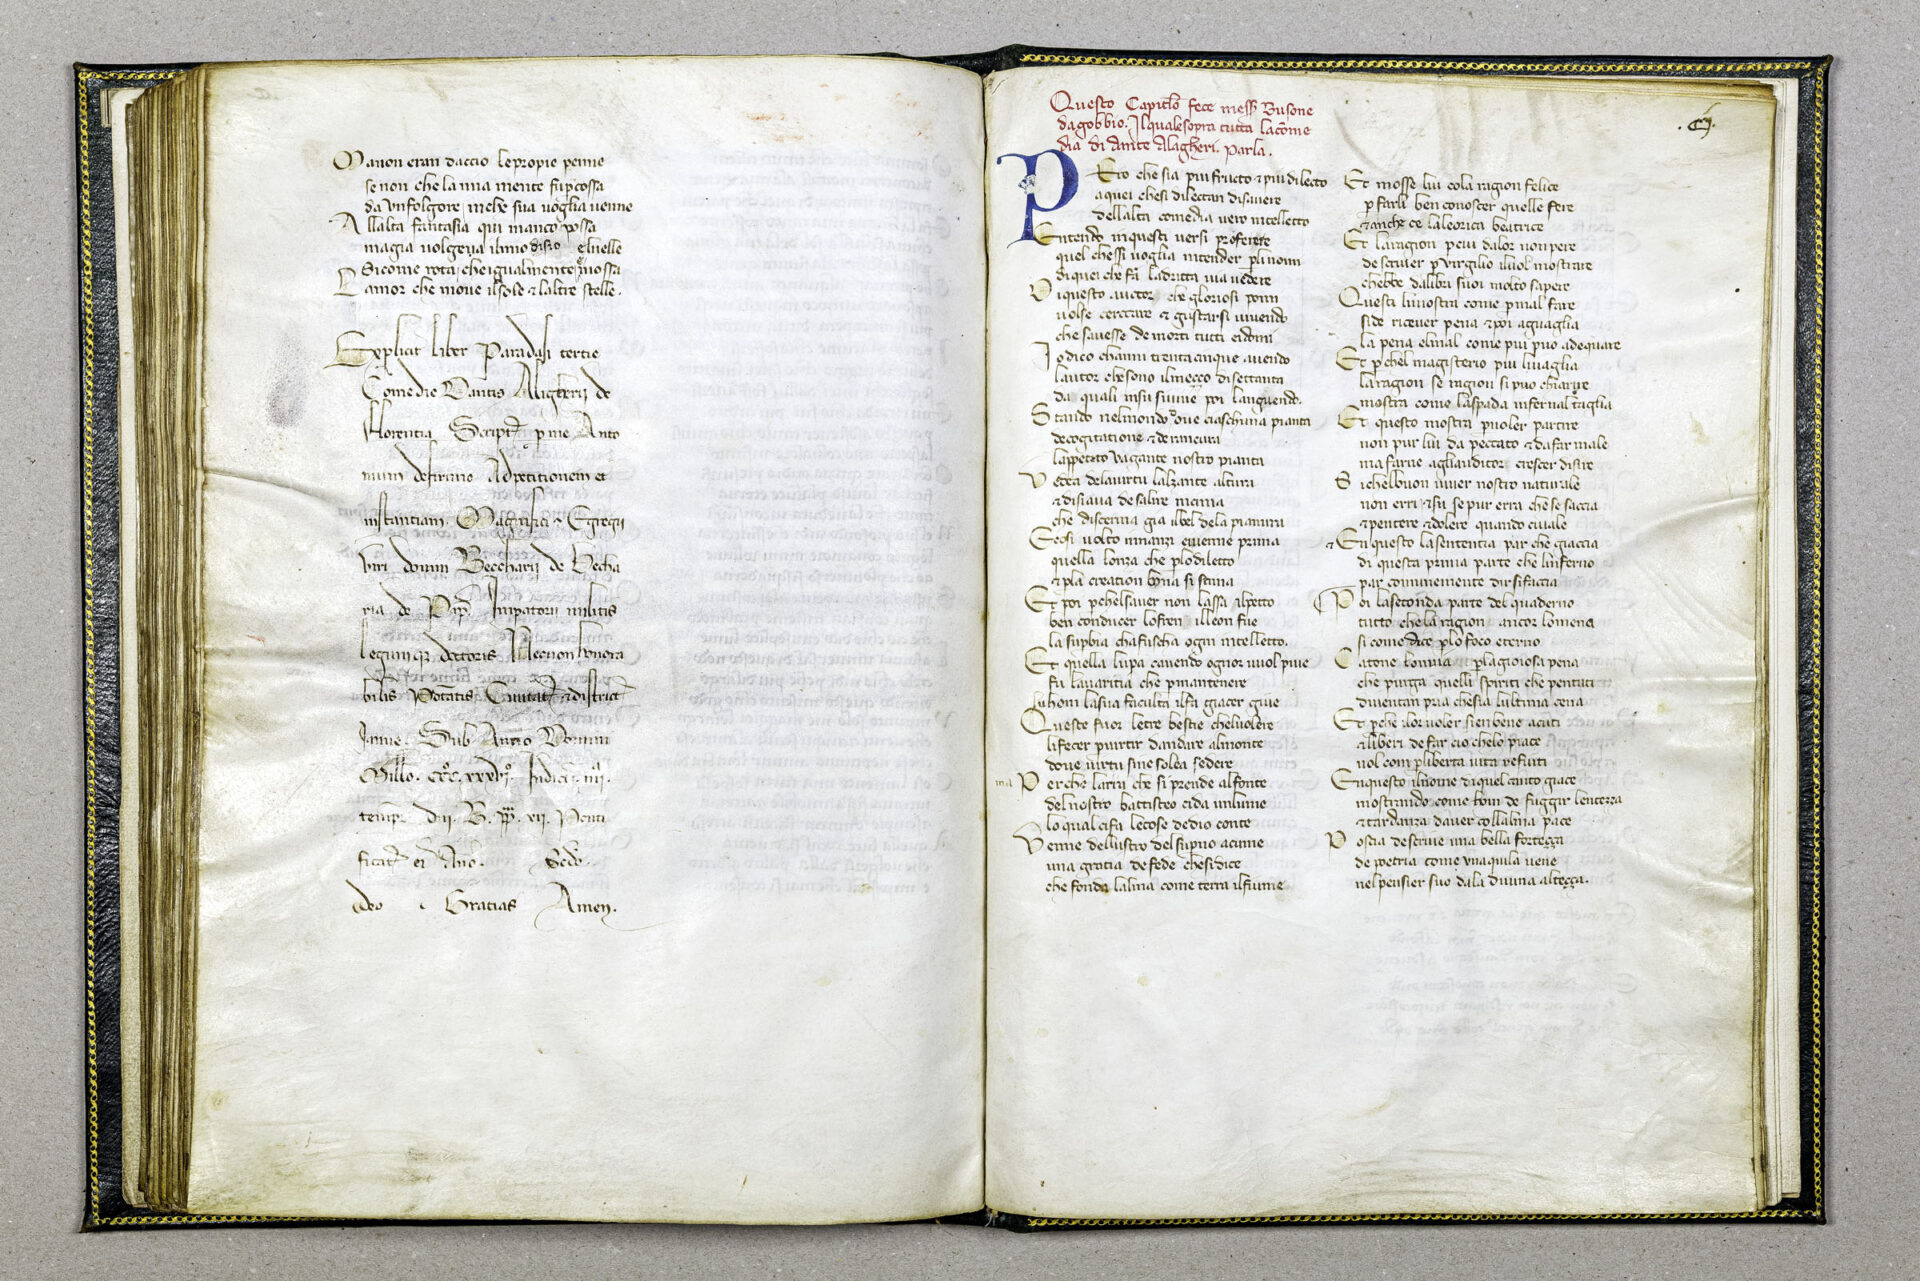 Manon eran daccio lepropie penne
se non che la mia mente fu pcossa
da vnfolgore in che sua uoglia uenne
Allalta fantasia qui manco possa
magia uolgeua ilmio disio eluelle
Sicome rota che igualmente mossa
Lamor che moue ilsole & laltre stelle.
Explicit liber Paradisi tertie
Comedie Dantis Alagherii de
Florentia Script p me Anto
nium de firmo Ad petitionem et
instantiam Magnifici & Egregii
viri domini Beccharii de Becha
ria de Pap Impatorii militis
legum qz doctoris Necnon honora
bilis Potatis Ciuitat & district
Ianue Sub Anno Domini
Millo. ccc. xxxvi. Indict. iiii.
tempr Dii. B. pp. xii. Ponti
ficat ei Anno. Scdo
deo Gracias Amen.
.cj.
Questo Capitlo fece mess Busone
dagobbio. Ilquale sopra tutta lacome
dia di dante Alagheri. parla.
Pero che sia piu fructo & piu dilecto
aquei chesi dilectan disauere
dellalta comedia uero intellecto
Entendo inquesti uersi proferere
quel chessi uoglia intender pli nomi
diquei che fan ladritta uia uedere
Di questo auctor che gloriosi pomi
uolse cercare & gustarsi uiuendo
che sauesse de morti tutti eidomi
Io dico channi trentacinque auendo
lautor che sono ilmezzo disettanta
da quali insu siuiue poi languendo.
Stando nelmondo oue ciaschuna pianta
decogitatione & de rancura
lappetito vagante nostro pianta
Vedea delauirtu lalzante altura
& disiaua desalire incima
che discerna gia ilbel dela pianura
Ecosi uolto innanzi euienne prima
quella lonza che plo diletto
& pla creation bona si stima
Et poi pchelsauer non lassa ilpetto
ben conducer lofren illeon fue
la supbia chafuscha ogni intelletto.
Et quella lupa cauendo ognor uuol piue
fu lauaritia che pmantenere
luhom lasua faculta ilfa giacer giue
Queste fuor letre bestie cheluolere
lifecer partir dandare almonte
doue uirtu sine solea sedere
Perche laria che si prende alfonte
del nostro battisteo cida unlume
lo qual cifa lecose dedio conte
Venne dellustro del supno acume
una gratia de fede chesidice
che fonda lalma come terra ilfiume
Et mosse lui cola ragion felice
p farli ben conoscer quelle fere
& anche ce la leorica beatrice
Et laragion peui dalor nonpere
de seguer p virgilio iluol mostrare
chebbe dalibri suoi molto sapere
Questi limostra come pmal fare
side riceuer pena & poi aguaglia
la pena elmal come piu puo adequare
Et pchel magisterio piu liuaglia
laragion se ragion si puo chiarire
mostra come laspada infernal taglia
Et questo mostra puoler partire
non pur lui da peccato & da far male
ma farne agliauditor crescer disire
Si chelbuon uiuer nostro naturale
non erri & su se pur erra che se faccia
& pentere & dolere quando cuuale
Enquesto lasententia par che giaccia
di questa prima parte che linferno
par comunemente dirsifaccia
Poi laseconda parte del quaderno
tutto che la ragion ancor lomena
si come dice plo foco eterno
Catone lonuia plagioiosa pena
che purga quelli spiriti che pentuti
diuentan pria chesia lultima cena
Et pche ilor uoler sienbene acuti
& liberi de far cio chelo piace
uol com pliberta uita refiuti
Enquesto ilnome diquel canto giace
mostrando come hom de fuggir lentezza
& tardanza dauer collalma pace
Poscia descriue una bella fortezza
de poetria come vnaquila uene
nelpensier suo dala diuina altezza.